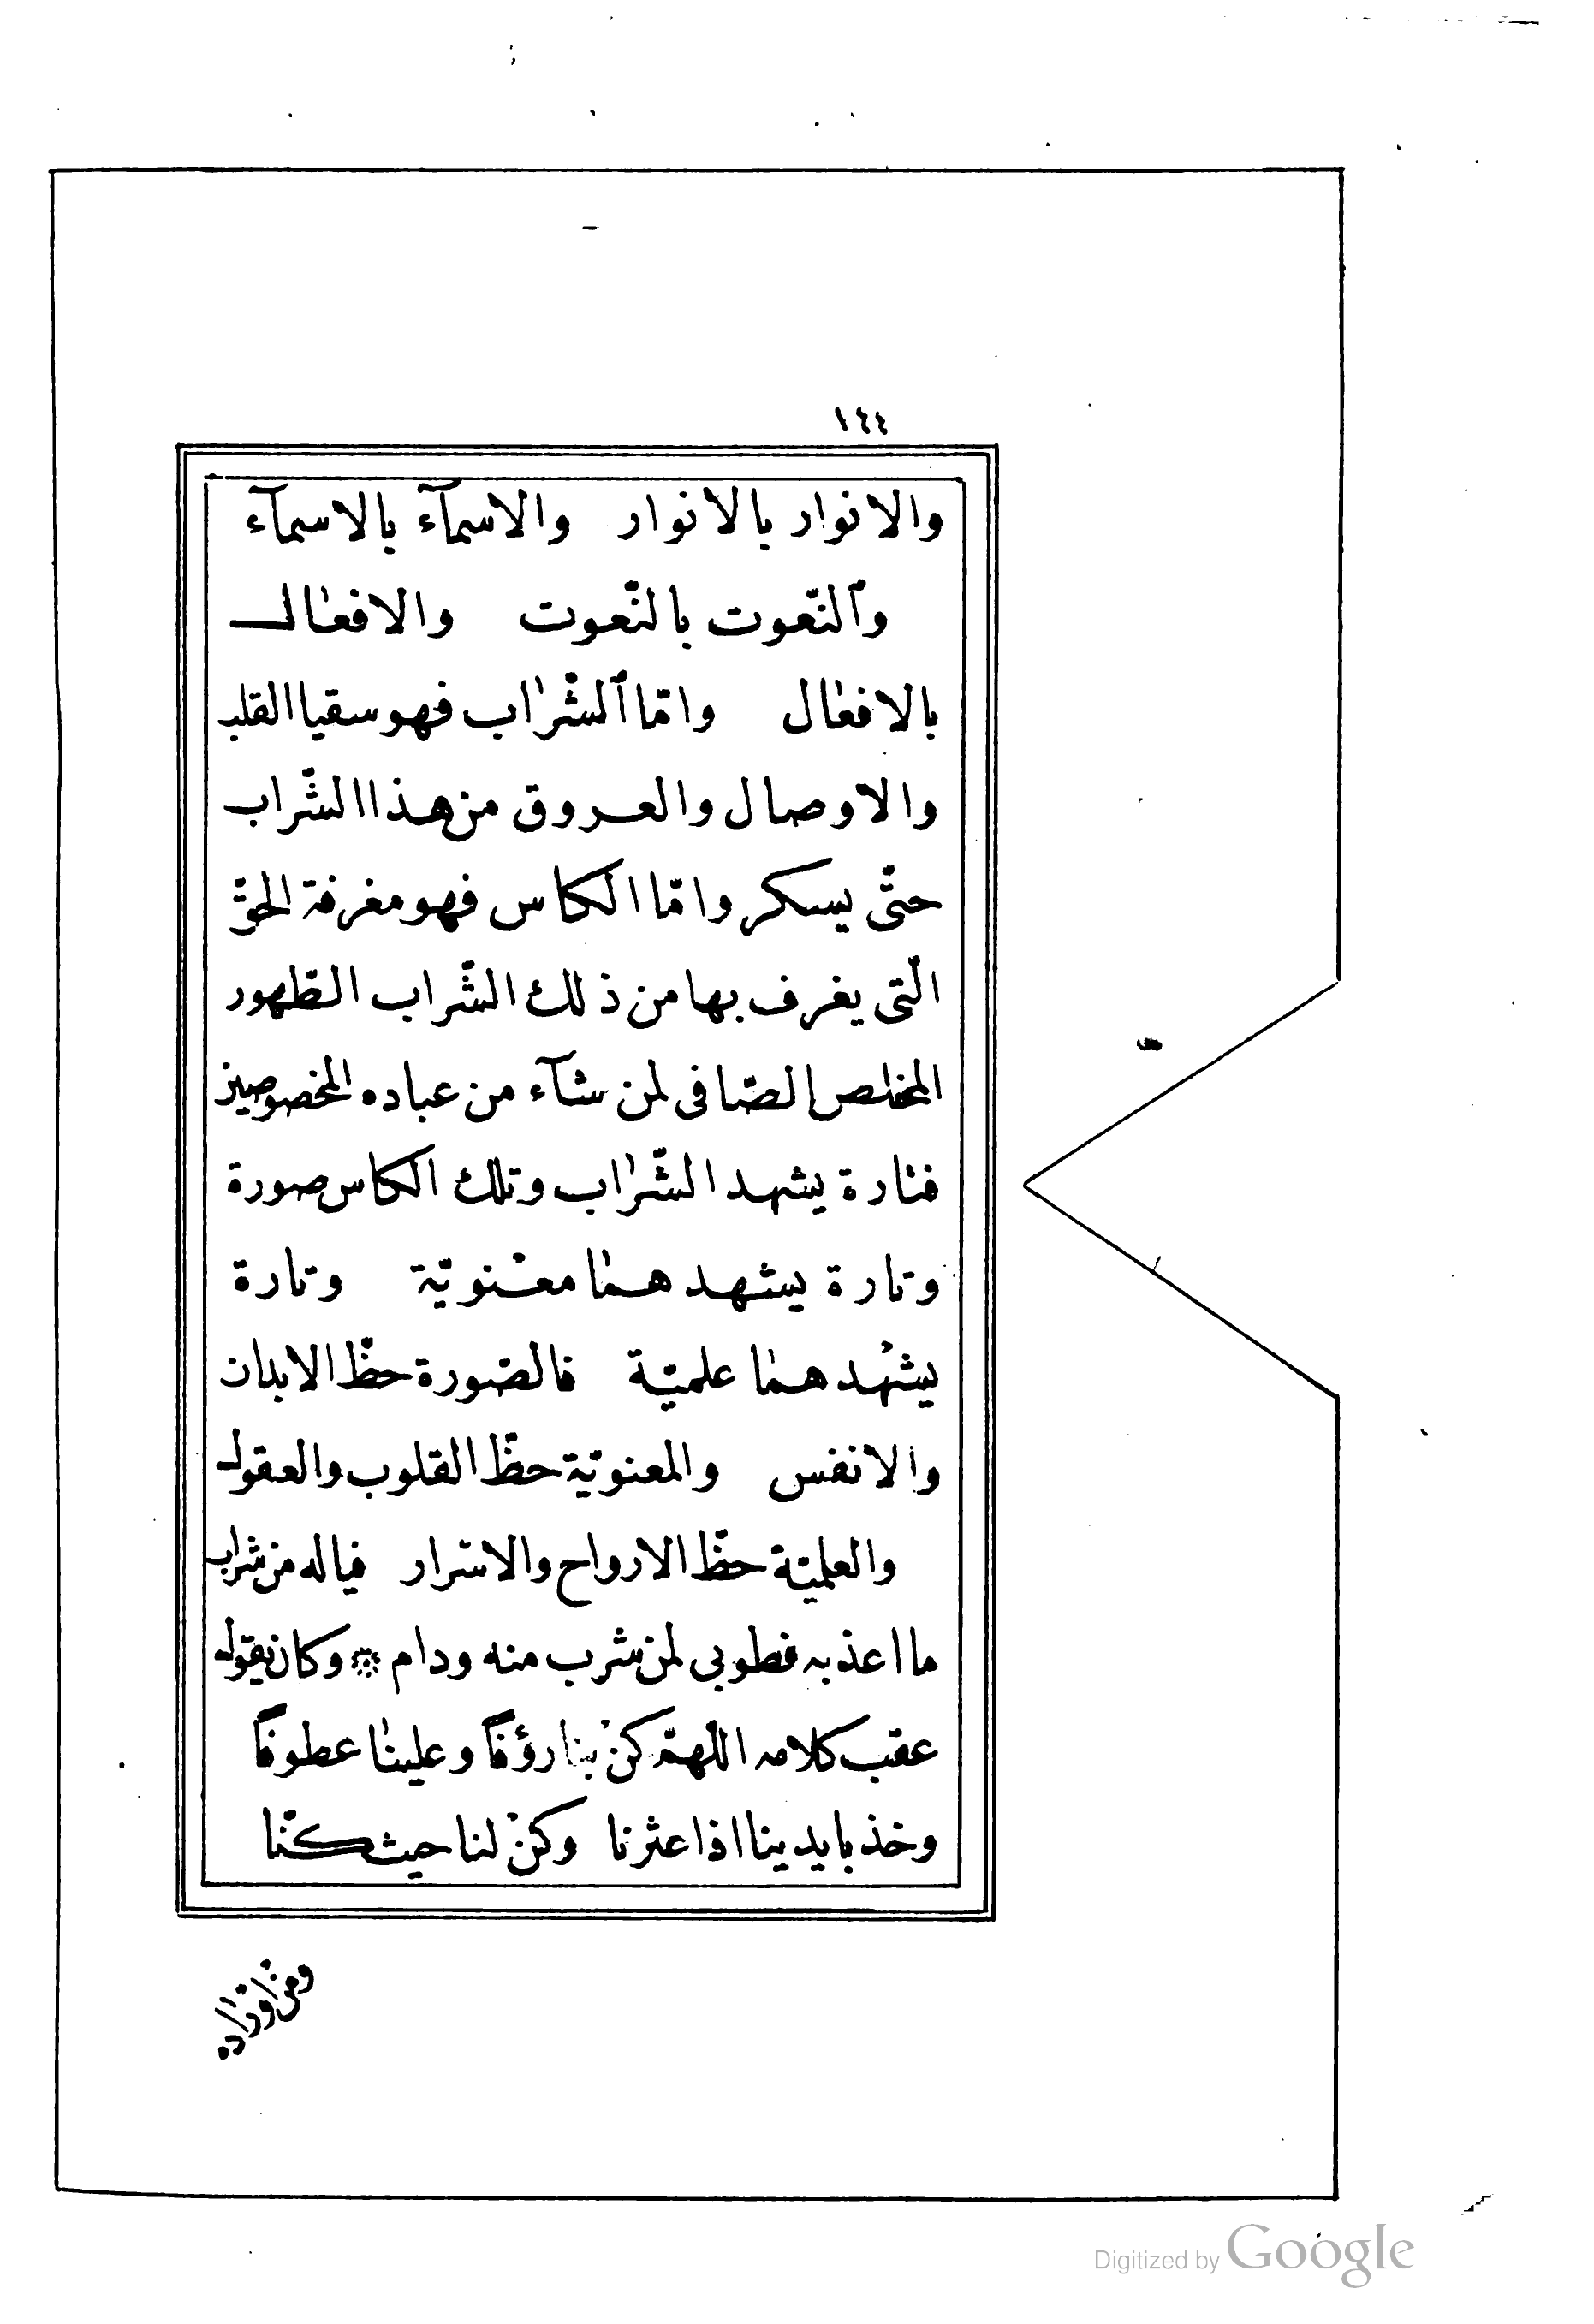 ١٤٤
والانوار بالانوار والاسمآء بالاسمآء
وٱلنّعوت بالنّعوت والافعال
بالافعال وامّا ٱلشّراب فهو سقيا القلب
والاوصال والعروق من هذا الشّراب
حتّى يسكر وامّا الكاس فهو مغرفة الحقّ
الّتى يغرف بها من ذلك الشّراب الطّهور
المخلص الصّافى لمن شآء من عباده المخصوصين
فتارة يشهد الشّراب وتلك الكاس صورة
وتارة يشهدهما معنويّة وتارة
يشهدهما علميّة فالصّورة حظّ الابدان
والانفس والمعنويّة حظّ القلوب والعقول
والعلميّة حظّ الارواح والاسرار فياله من شراب
ما اعذبه فطوبى لمن شرب منه ودام ۞ وكان يقول
عقب كلامه اللّهمّ كن بنا رؤفاً وعلينا عطوفاً
وخذ بايدينا اذا عثرنا وكن لنا حيث كنّا
ومن اوراده
Digitized by Google